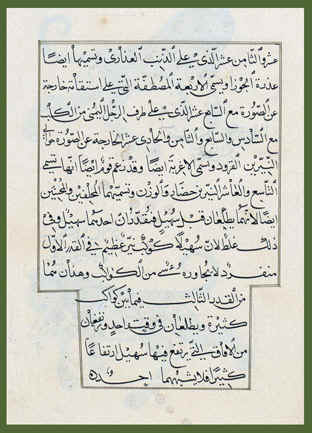 عشر والثامن عشر الذى على الذنب العذارى وتسميها ايضًا
عذرة الجوزا وتسمى الاربعة المصطفة التى على استقامة خارجة
عن الصورة مع التاسع عشر الذى على طرف الرجل اليمنى من الكلب
مع السادس والسابع والثامن والحادى عشر الخارجة عن الصورة
القرود وتسمى الاغربة ايضًا وقد زعم قوم ايضًا انها تسمى
التاسع والعاشر النيرين حضار والوزن وتسميهما المحلفين والمحنثين
ايضًا لانهما يطلعان قبل سهيل فيقدر ان احدهما سهيل وفى
ذلك غلط لان سهيلا كوكب نير عظيم فى القدر الاول
منفرد لا يجاوره شئ من الكواكب وهذان هما
من القدر الثالث فيما بين كواكب
كثيرة ويطلعان فى وقت واحد ويرتفعان
من الافاق التى يرتفع فيها سهيل ارتفاعًا
كثيرًا فلا يشبههما احد